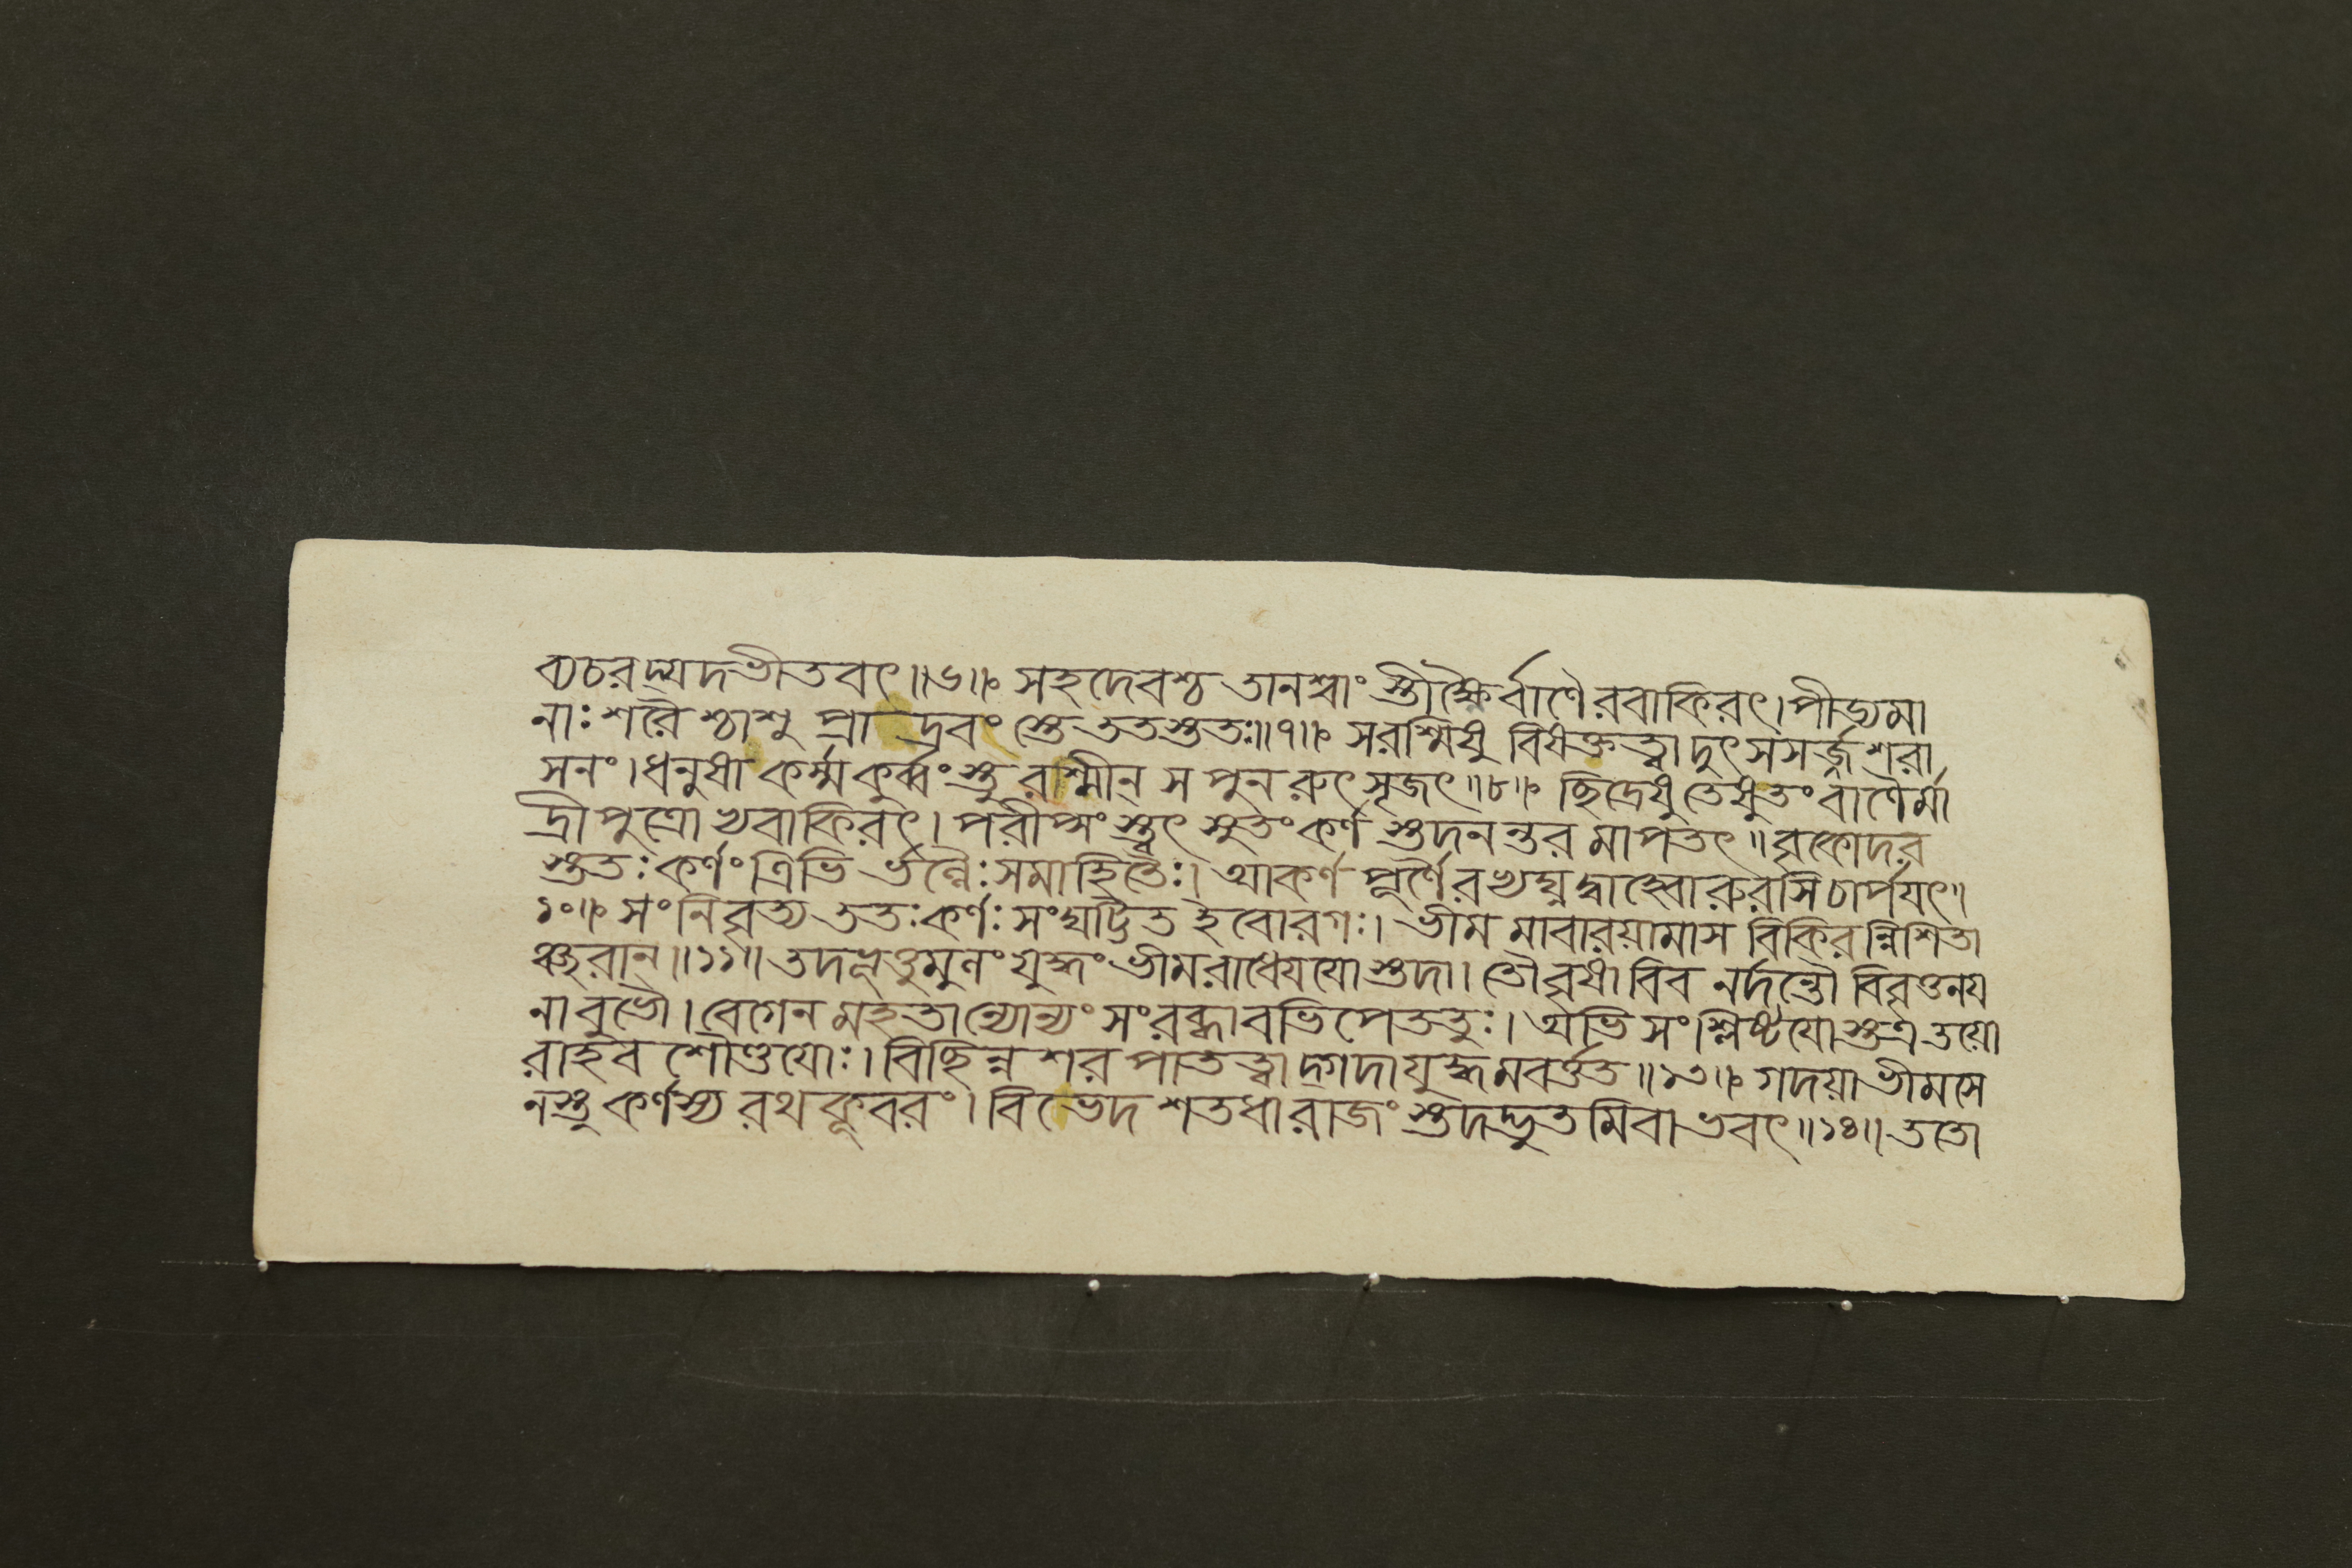 ব্যচরদ্যদভীতবৎ॥৬॥ সহদেবশ্চ তানশ্বাং স্তীক্ষ্ণৈর্বাণৈরবাকিরৎ।পীড্যমা
নাঃ শরৈ শ্চাশু প্রা দ্রবং স্তে ততস্ততঃ॥৭॥ সরশ্মিষু বিষক্তত্বাদুৎ সসর্জ শরা
সনং।ধনুষা কর্ম্ম কুর্ব্বংস্তু রশ্মীন্ স পুন রুৎসৃজৎ॥৮॥ ছিদ্রেষু তেষুতং বাণৈর্মা
দ্রীপুত্রো ঽবাকিরৎ। পরীপ্সং স্ত্বৎ সুতং কর্ণ স্তদনন্তর মাপতৎ॥ বৃকোদর
স্ততঃ কর্ণং ত্রিভি র্ভল্লৈঃ সমাহিতৈঃ। আকর্ণ পূর্ণৈরভ্যঘ্নদ্বাহ্বোরুরসি চার্পযৎ॥
১০॥ সংনিবৃত্য ততঃ কর্ণঃ সংঘট্টিত ইবোরগঃ। ভীম মাবারয়ামাস বিকিরন্নিশিতা
ঞ্ছরান্॥১১॥ তদভূত্তুমুলং যুদ্ধং ভীমরাধেযযোস্তদা। তৌ বৃষা বিব নর্দন্তৌ বিবৃত্তনয
না বুভৌ। বেগেন মহতান্যোন্যং সংরব্ধাবভিপেততুঃ। অভি সংশ্লিষ্টযোস্তত্র তয়ো
রাহব শৌণ্ডযোঃ। বিছিন্ন শর পাতত্বাদ্গদাযুদ্ধমবর্ত্তত॥১৩॥ গদয়া ভীমসে
নস্তু কর্ণস্য রথকূবরং। বিভেদ শতধা রাজং স্তদদ্ভুতমিবাভবৎ॥১৪॥ ততো